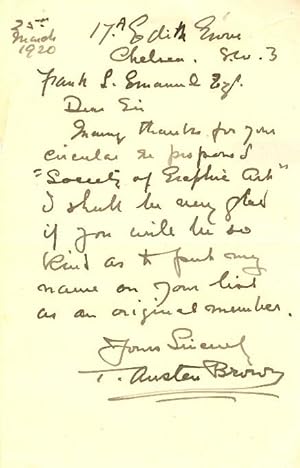 25th
March
1920
17A Edith Grove
Chelsea. S.W. 3
Frank L. Emanuel Esq.
Dear Sir
Many thanks for your
circular re proposed
"Society of Graphic Art"
I shall be very glad
if you will be so
kind as to put my
name on your list
as an original member.
Yours Sincerely
T. Austen Brown